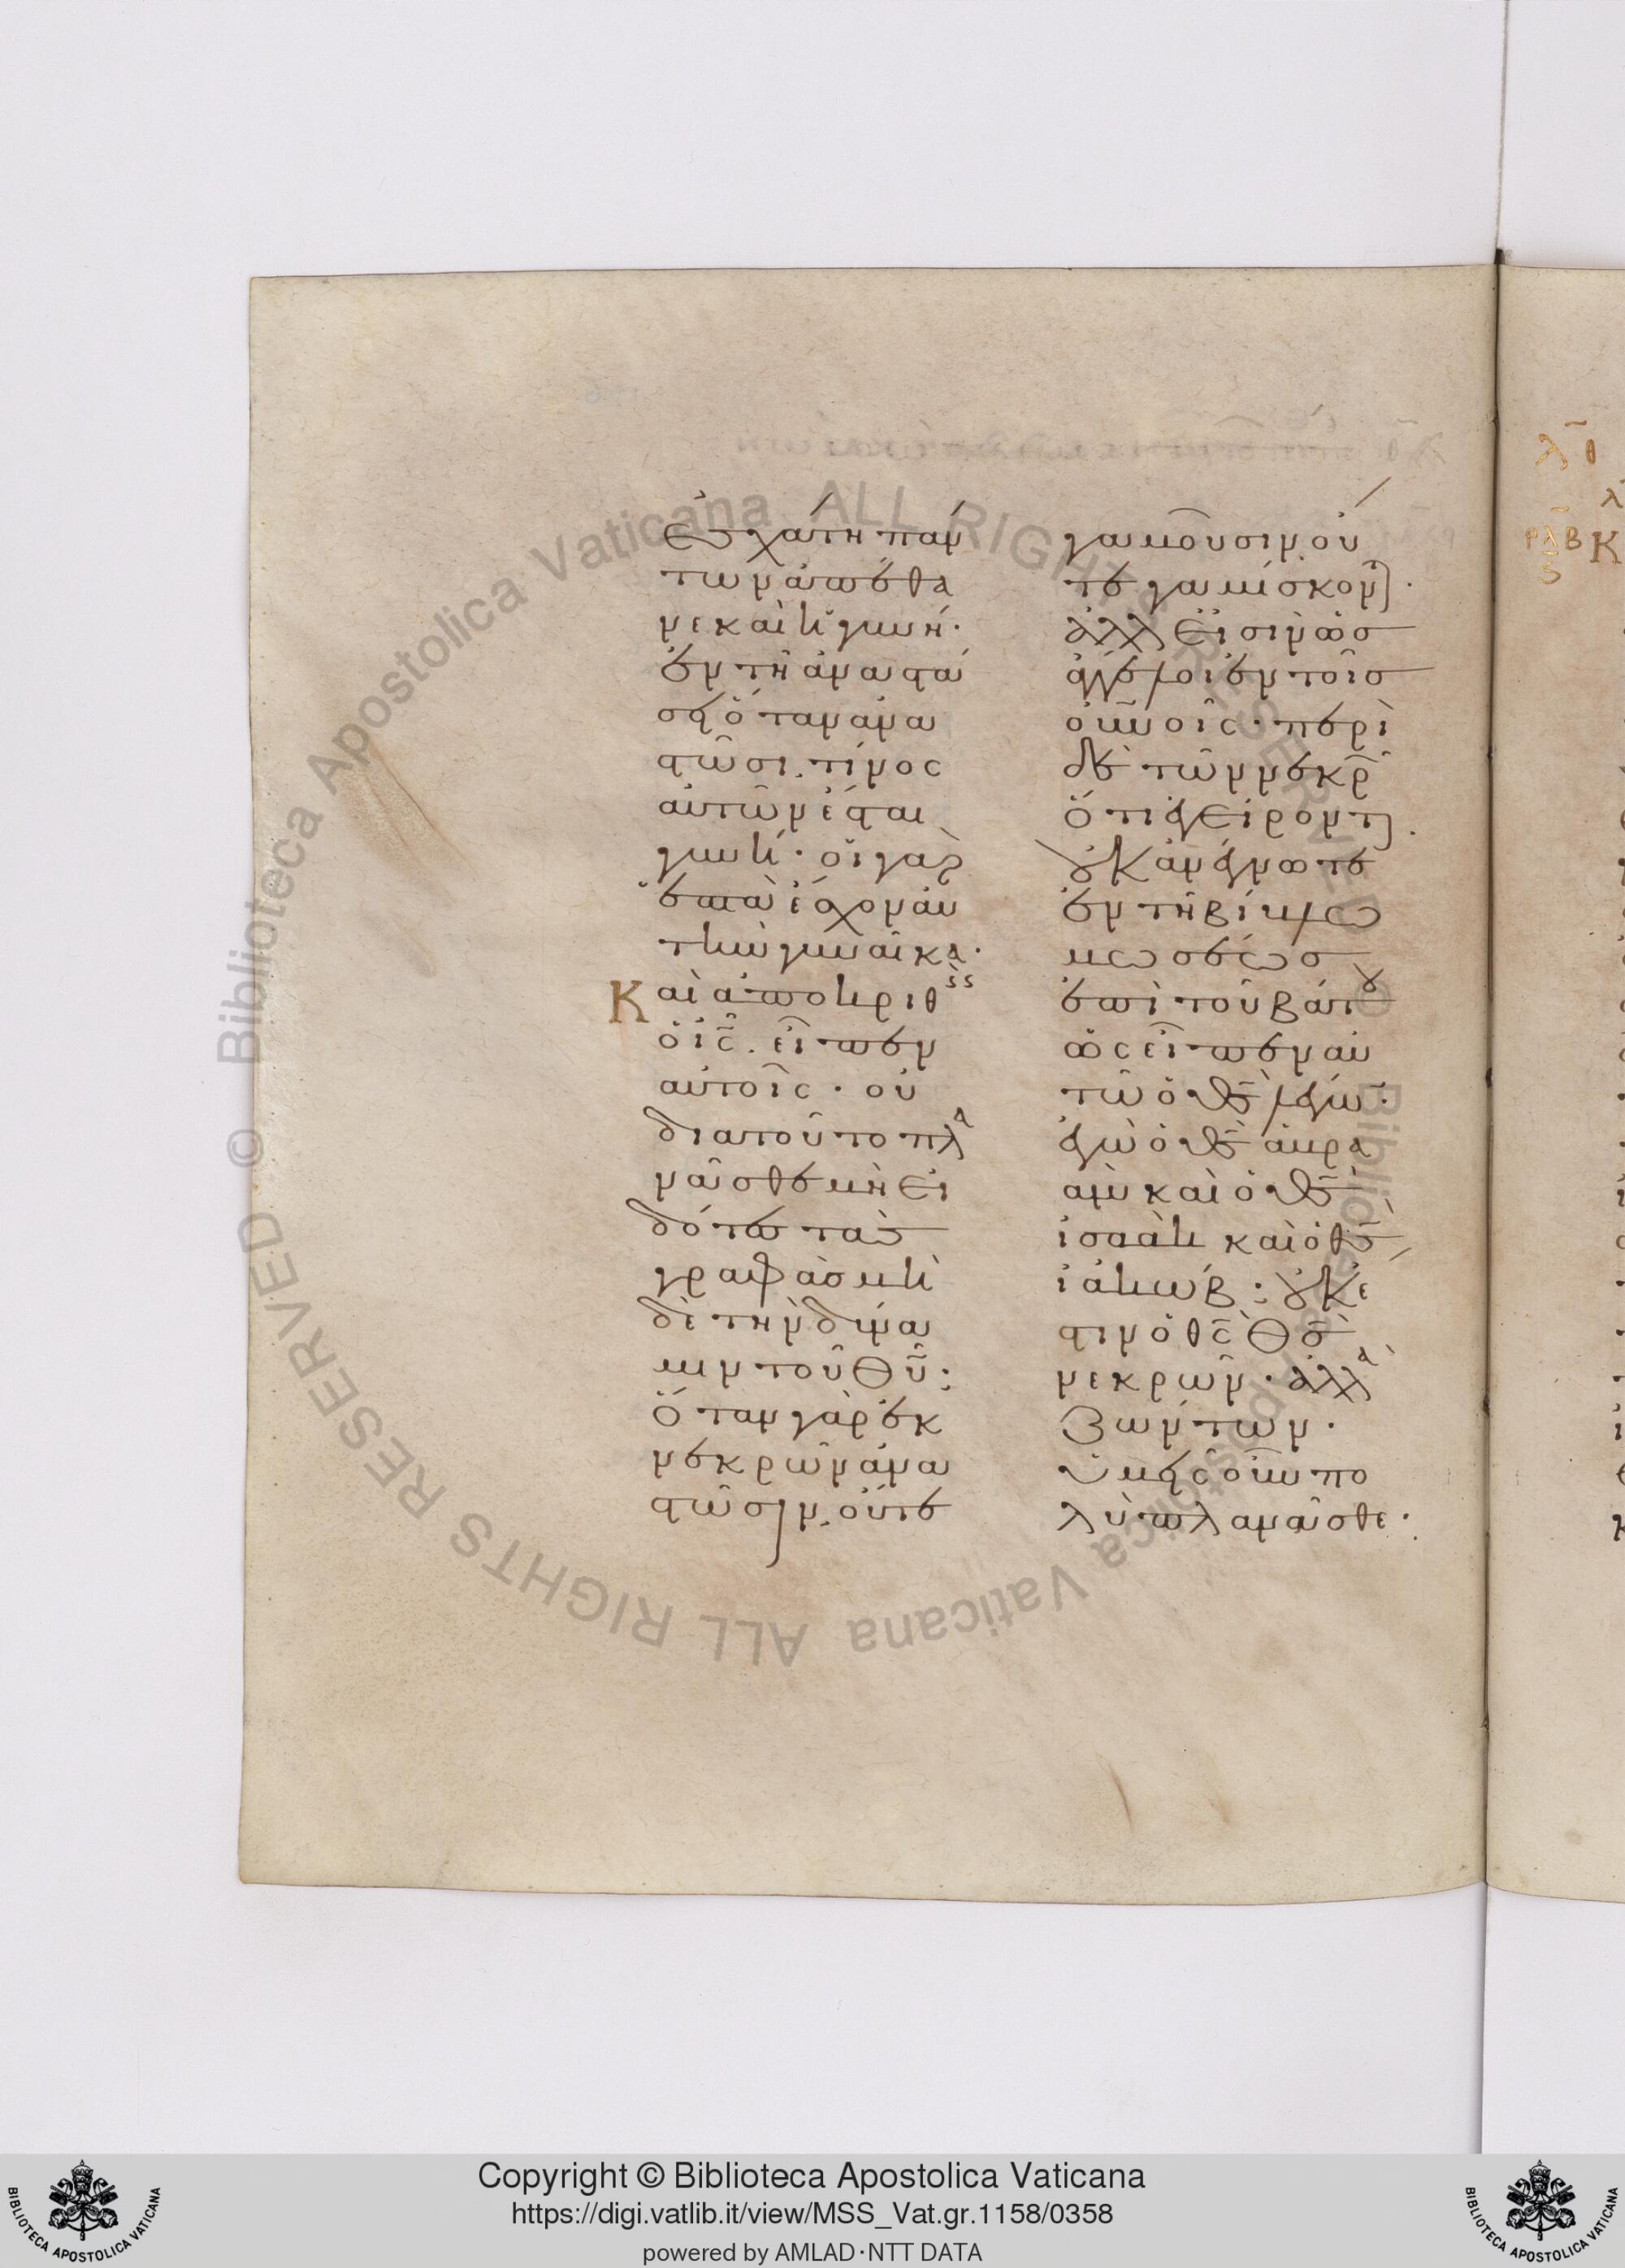 ἐσχάτη πάν
των ἀπέθα
νε καὶ ἡ γυνή·
ἐν τῆ ἀναστά
σει ὅταν ἀνα
στῶσι, τίνος
αὐτῶν ἔσται
γυνή· οἱ γὰρ
ἑπτὰ ἔσχον αὐ
τὴν γυναῖκα·
Καὶ ἀποκριθεὶς
ὁ ις̅. εἶπεν
αὐτοῖς· οὐ
διατοῦτο πλα
νᾶσθε μὴ εἰ
δότες τὰς
γραφὰς μὴ
δὲ τὴν δύνα
μιν τοῦ θυ̅;
Ὅταν γὰρ ἐκ
νεκρῶν ἀνα
στῶσιν, οὔτε
γαμοῦσιν, οὔ
τε γαμίσκονται·
ἀλλ εἰσὶν ὡς
ἄγγελοι ἐν τοῖς
ουν̅οῖς· περὶ
δὲ τῶν νεκρῶν
ὅτι ἐγείρονται,
οὐκ ἀνέγνωτε
ἐν τῆ βίβλω
μωσέως
ἐπὶ τοῦ βάτου
ὡς εἶπεν αὐ
τῶ ὁ θς̅ λέγων·
ἐγὼ ὁ θς̅ ἀβρα
ὰμ καὶ ὁ θς̅
ἰσαὰκ καὶ ὁ θς̅
ἰακώβ; οὐκ ἔ
στιν ὁ θς̅ θς̅
νεκρῶν· ἀλλὰ
ζώντων·
ὑμεῖς οὖν πο
λὺ πλανᾶσθε·
λ̅θ
ρλ̅β
ϛ̅
Κ
© Biblioteca Apostolica Vaticana ALL RIGHTS RESERVED
© Biblioteca Apostolica Vaticana ALL RIGHTS RESERVED
Copyright © Biblioteca Apostolica Vaticana
https://digi.vatlib.it/view/MSS_Vat.gr.1158/0358
powered by AMLAD·NTT DATA
BIBLIOTECA APOSTOLICA VATICANA
BIBLIOTECA APOSTOLICA VATICANA